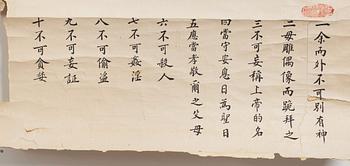 一余而外不可別有神
二毋雕偶像而跪拜之
三不可妄稱上帝的名
四當守安息日為聖日
五應當孝敬爾之父母
六不可殺人
七不可姦淫
八不可偷盜
九不可妄証
十不可貪婪